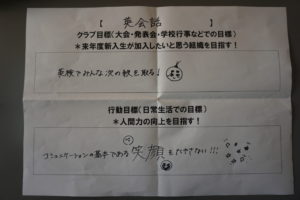 【 英会話 】
クラブ目標(大会・発表会・学校行事などでの目標)
*来年度新入生が加入したいと思う組織を目指す!
英検でみんな次の級を取る!
行動目標(日常生活での目標)
*人間力の向上を目指す!
コミュニケーションの基本である 笑顔 をたやさない!!!